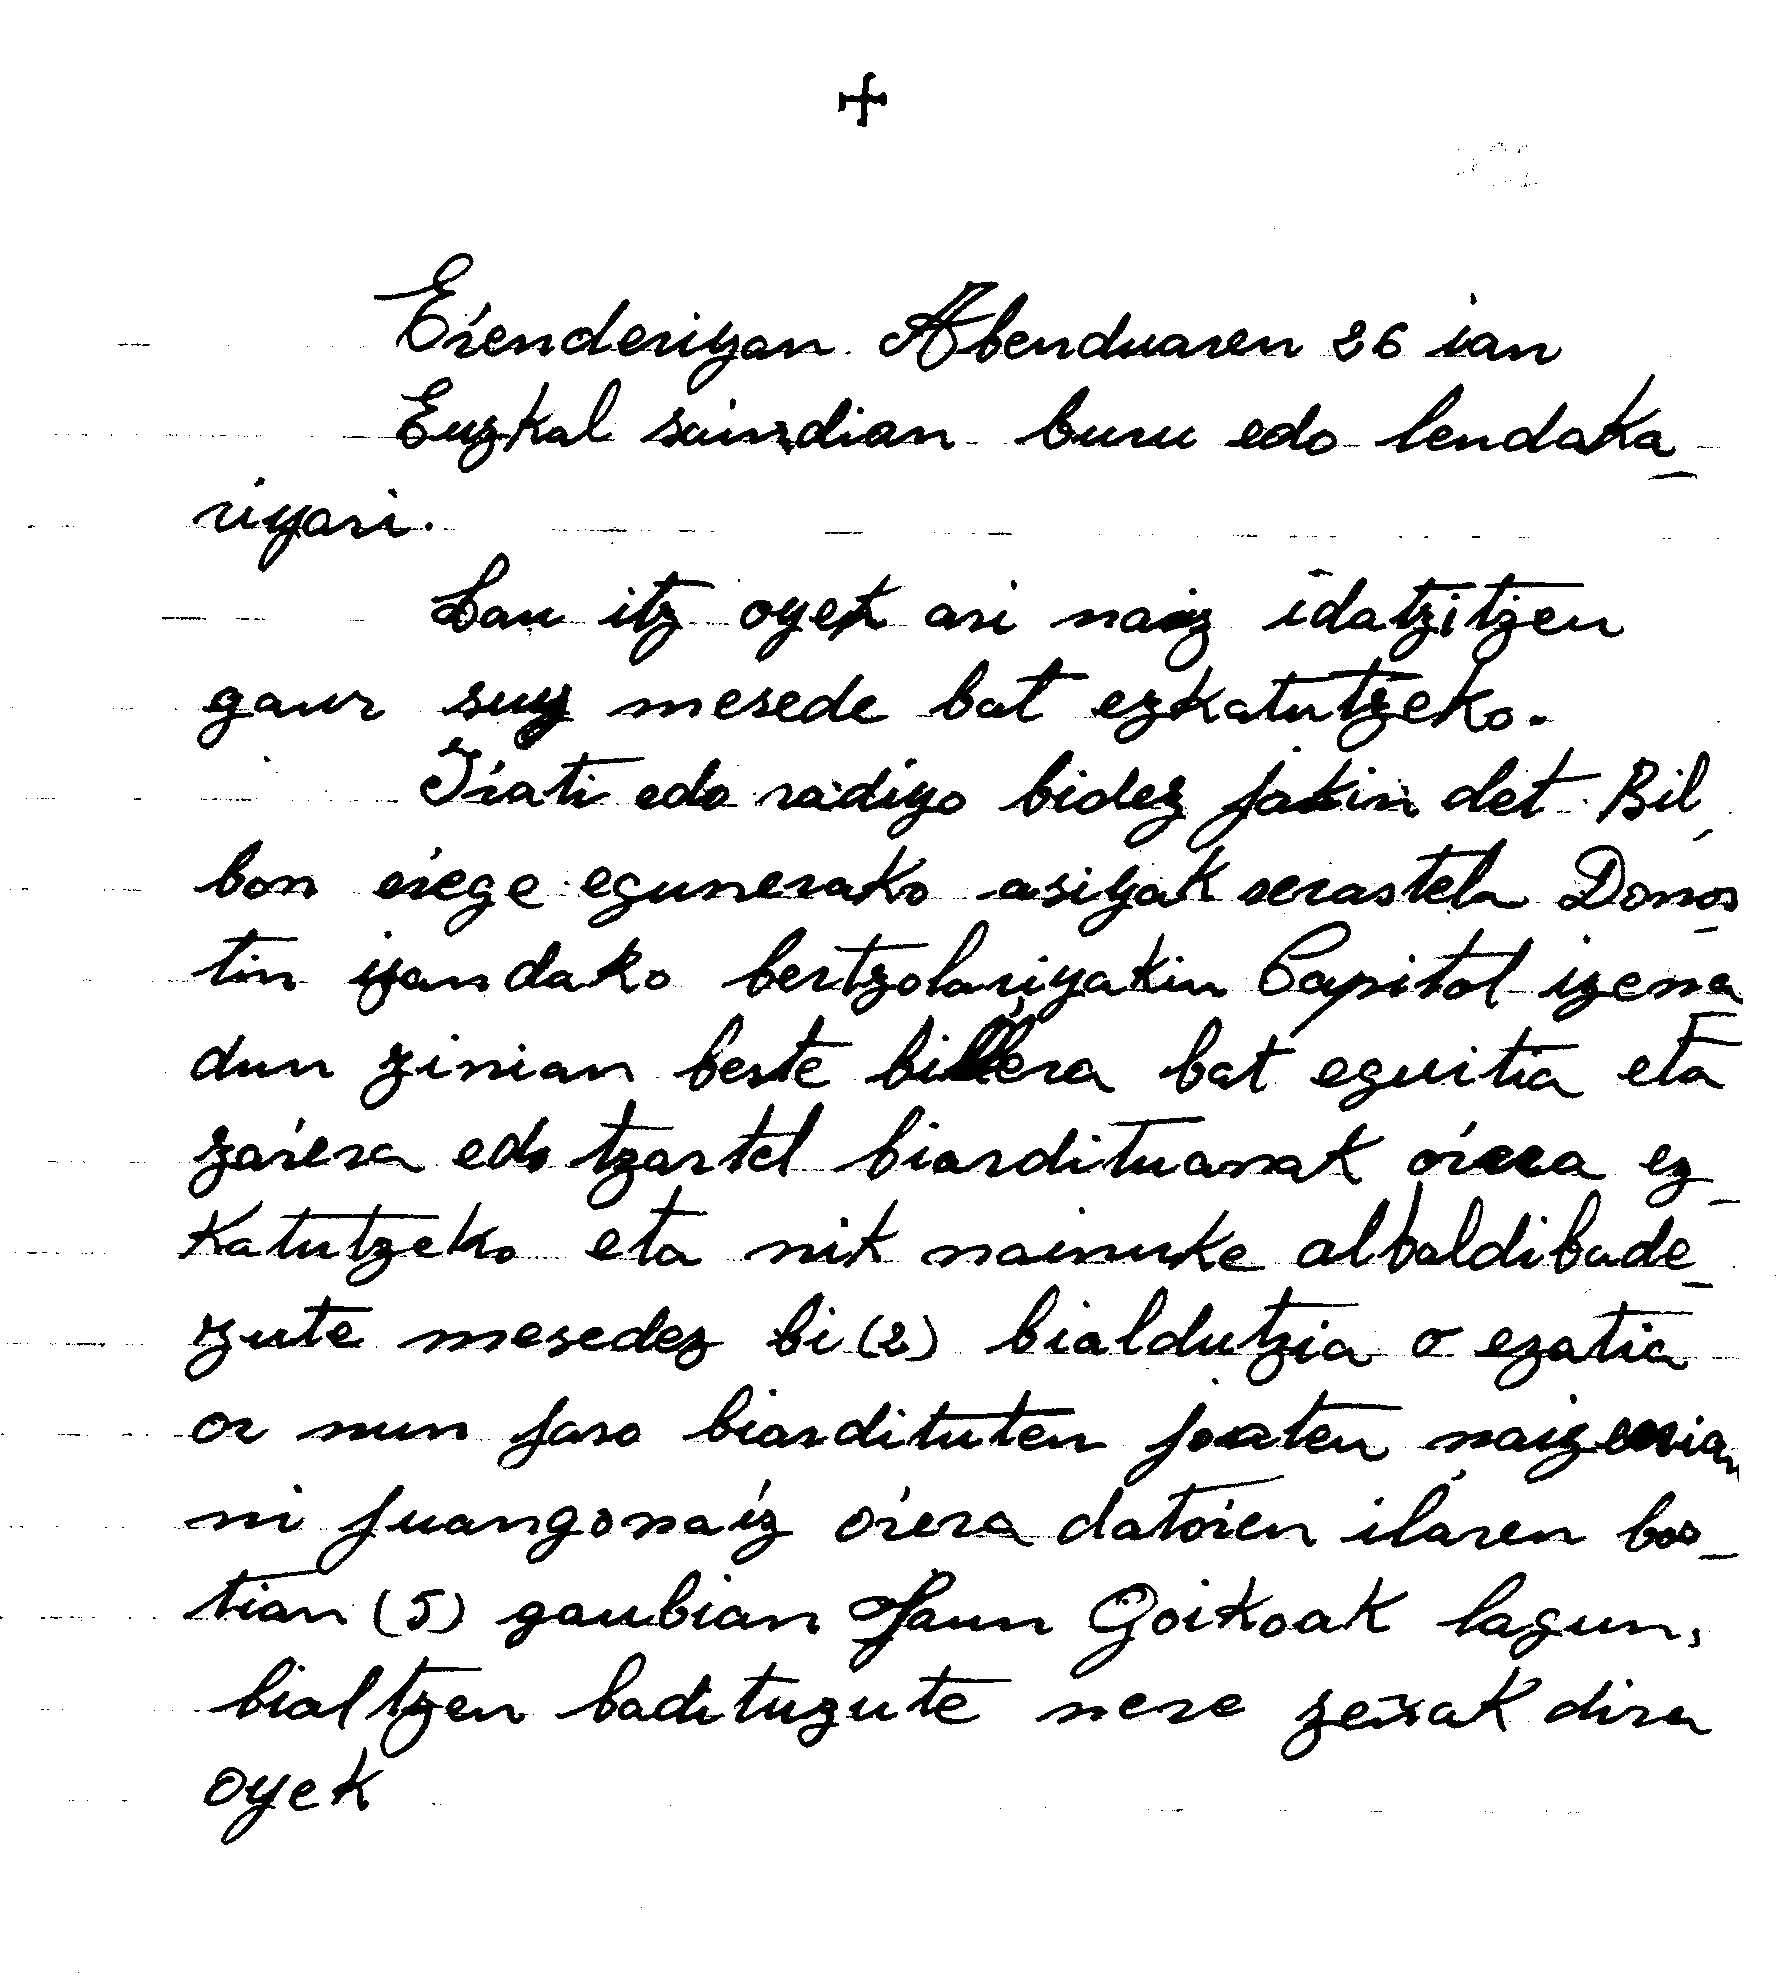 Eŕenderiyan Abenduaren 26 ian
Euzkal saindian buru edo lendaka_
riyari.
Lau itz oyek asi naiz idatzitzen
gaur suy mesede bat ezkatutzeko.
Iŕati edo radiyo bidez jakin det Bil_
bon eŕege egunerako asiyak serastela Donos_
tin izandako bertzolariyakin Capitol izena
dun zinian beste billera bat eguitia eta
zaŕera edo tzartel biardituanak oŕera ez_
katutzeko eta nik nainuke albaldibade_
zute mesedez bi (2) bialdutzia o ezatia
or nun jaso biardituten joaten naizenian
ni juangonaiz oŕera datoŕen ilaren bos_
tian (5) gaubian Jaun Goikoak lagun,
bialtzen baditugute nere zeñak dira
oyek